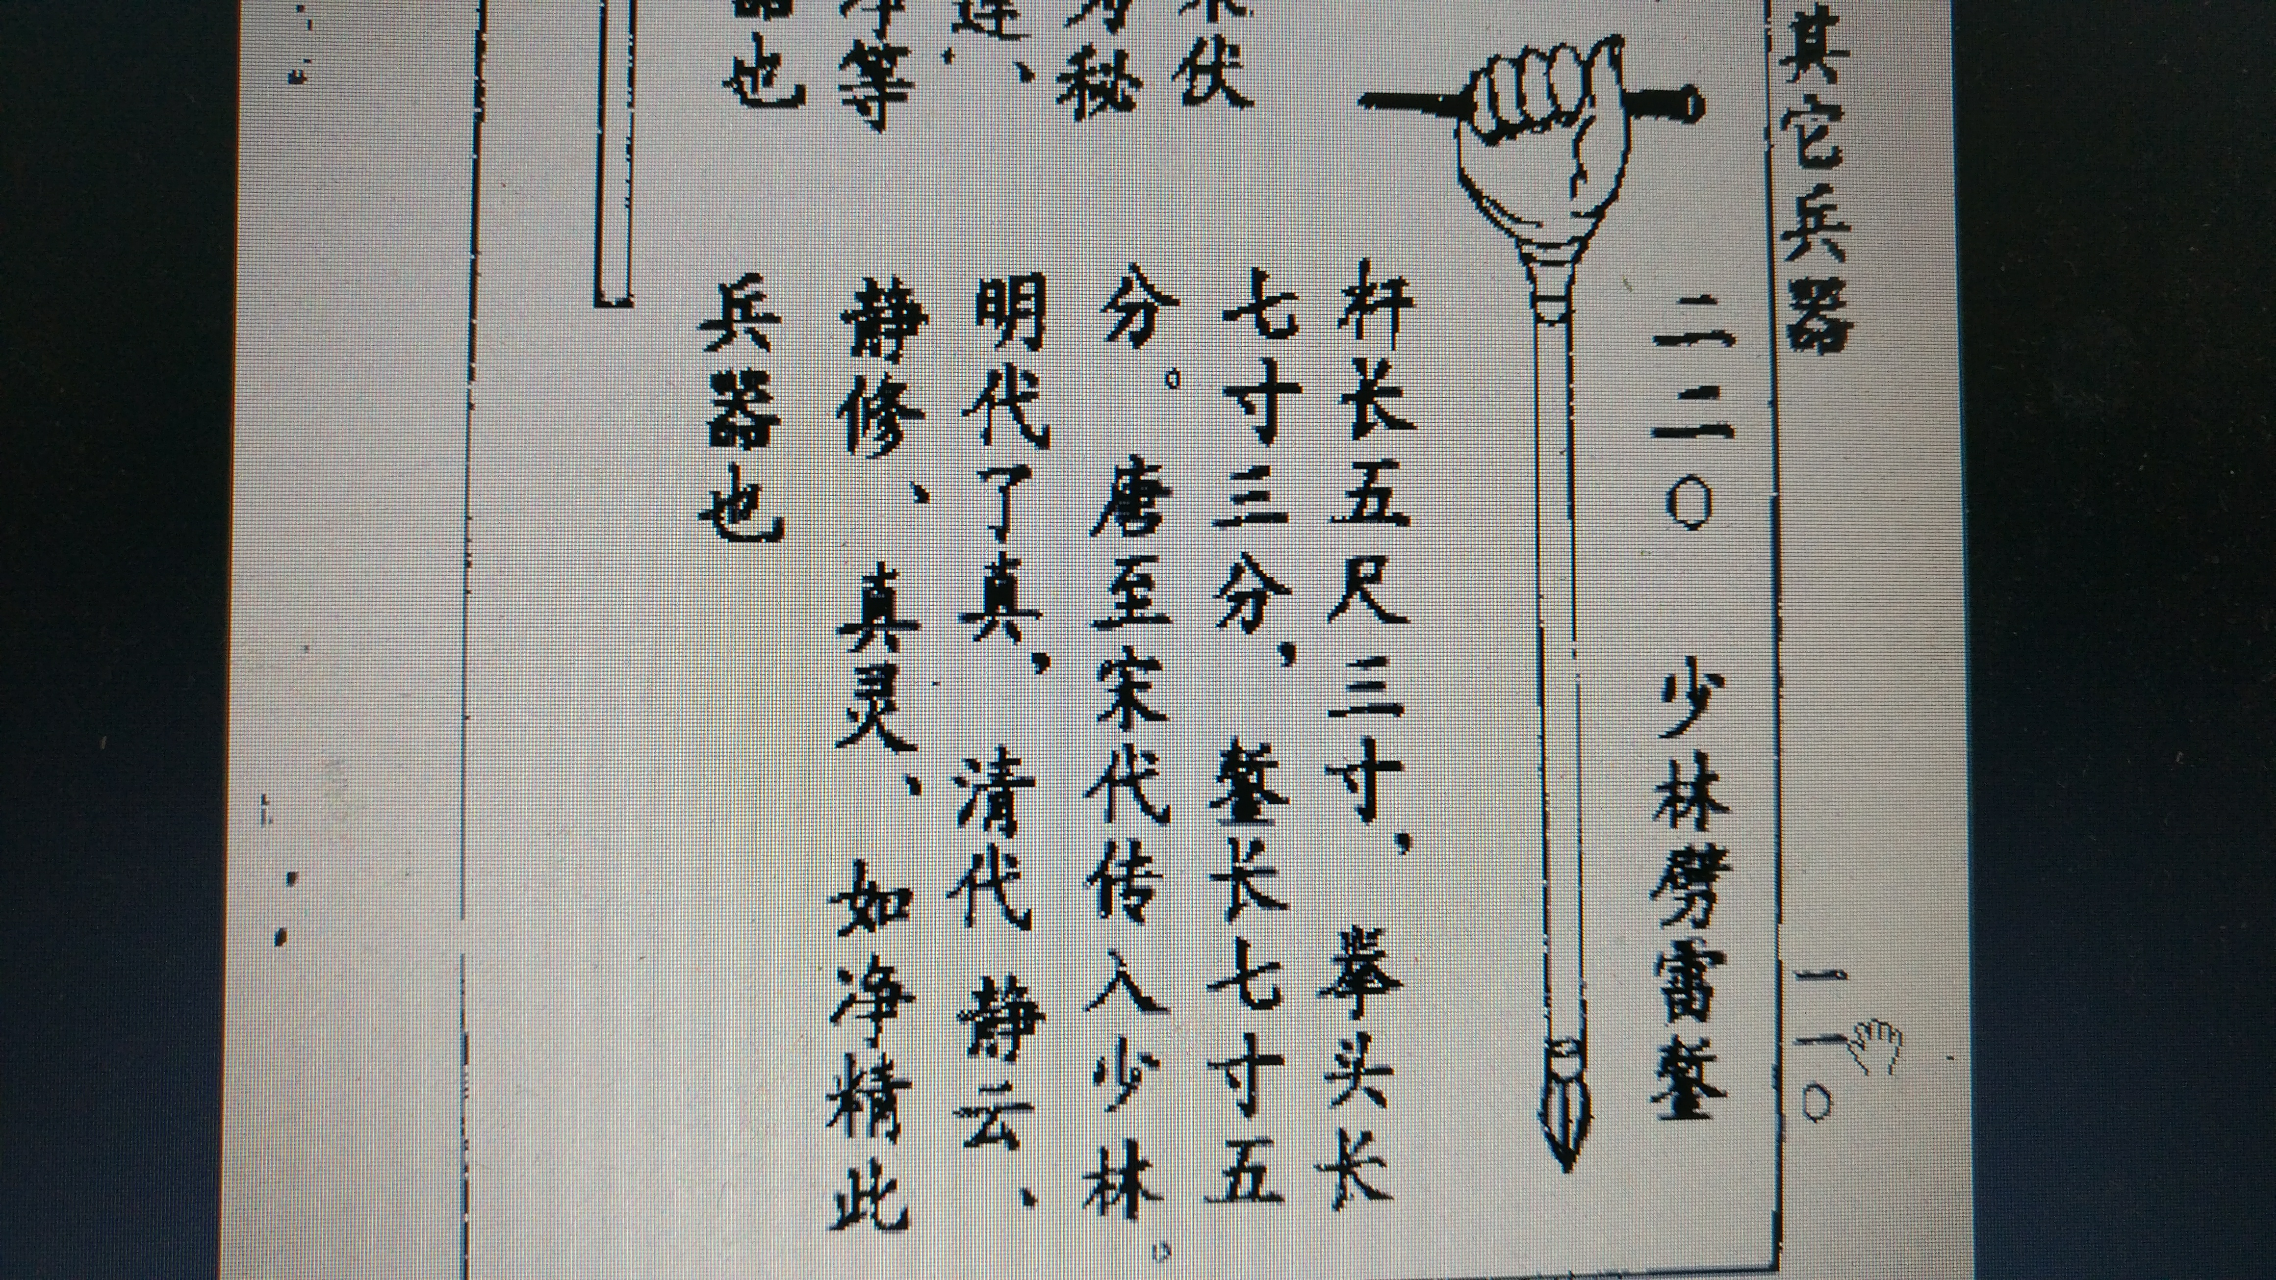 其它兵器
一一〇
二二〇 少林劈雷錾
杆长五尺三寸，拳头长
七寸三分，錾长七寸五
分。唐至宋代传入少林。
明代了真，清代静云、
静修、真灵、如净精此
兵器也
伏
秘
、
等
也